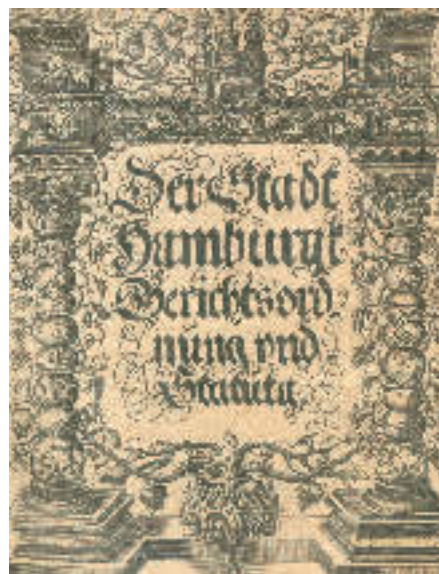 Der Stadt
Hamburgk
Gerichtsord-
nung vnd
Statuta.